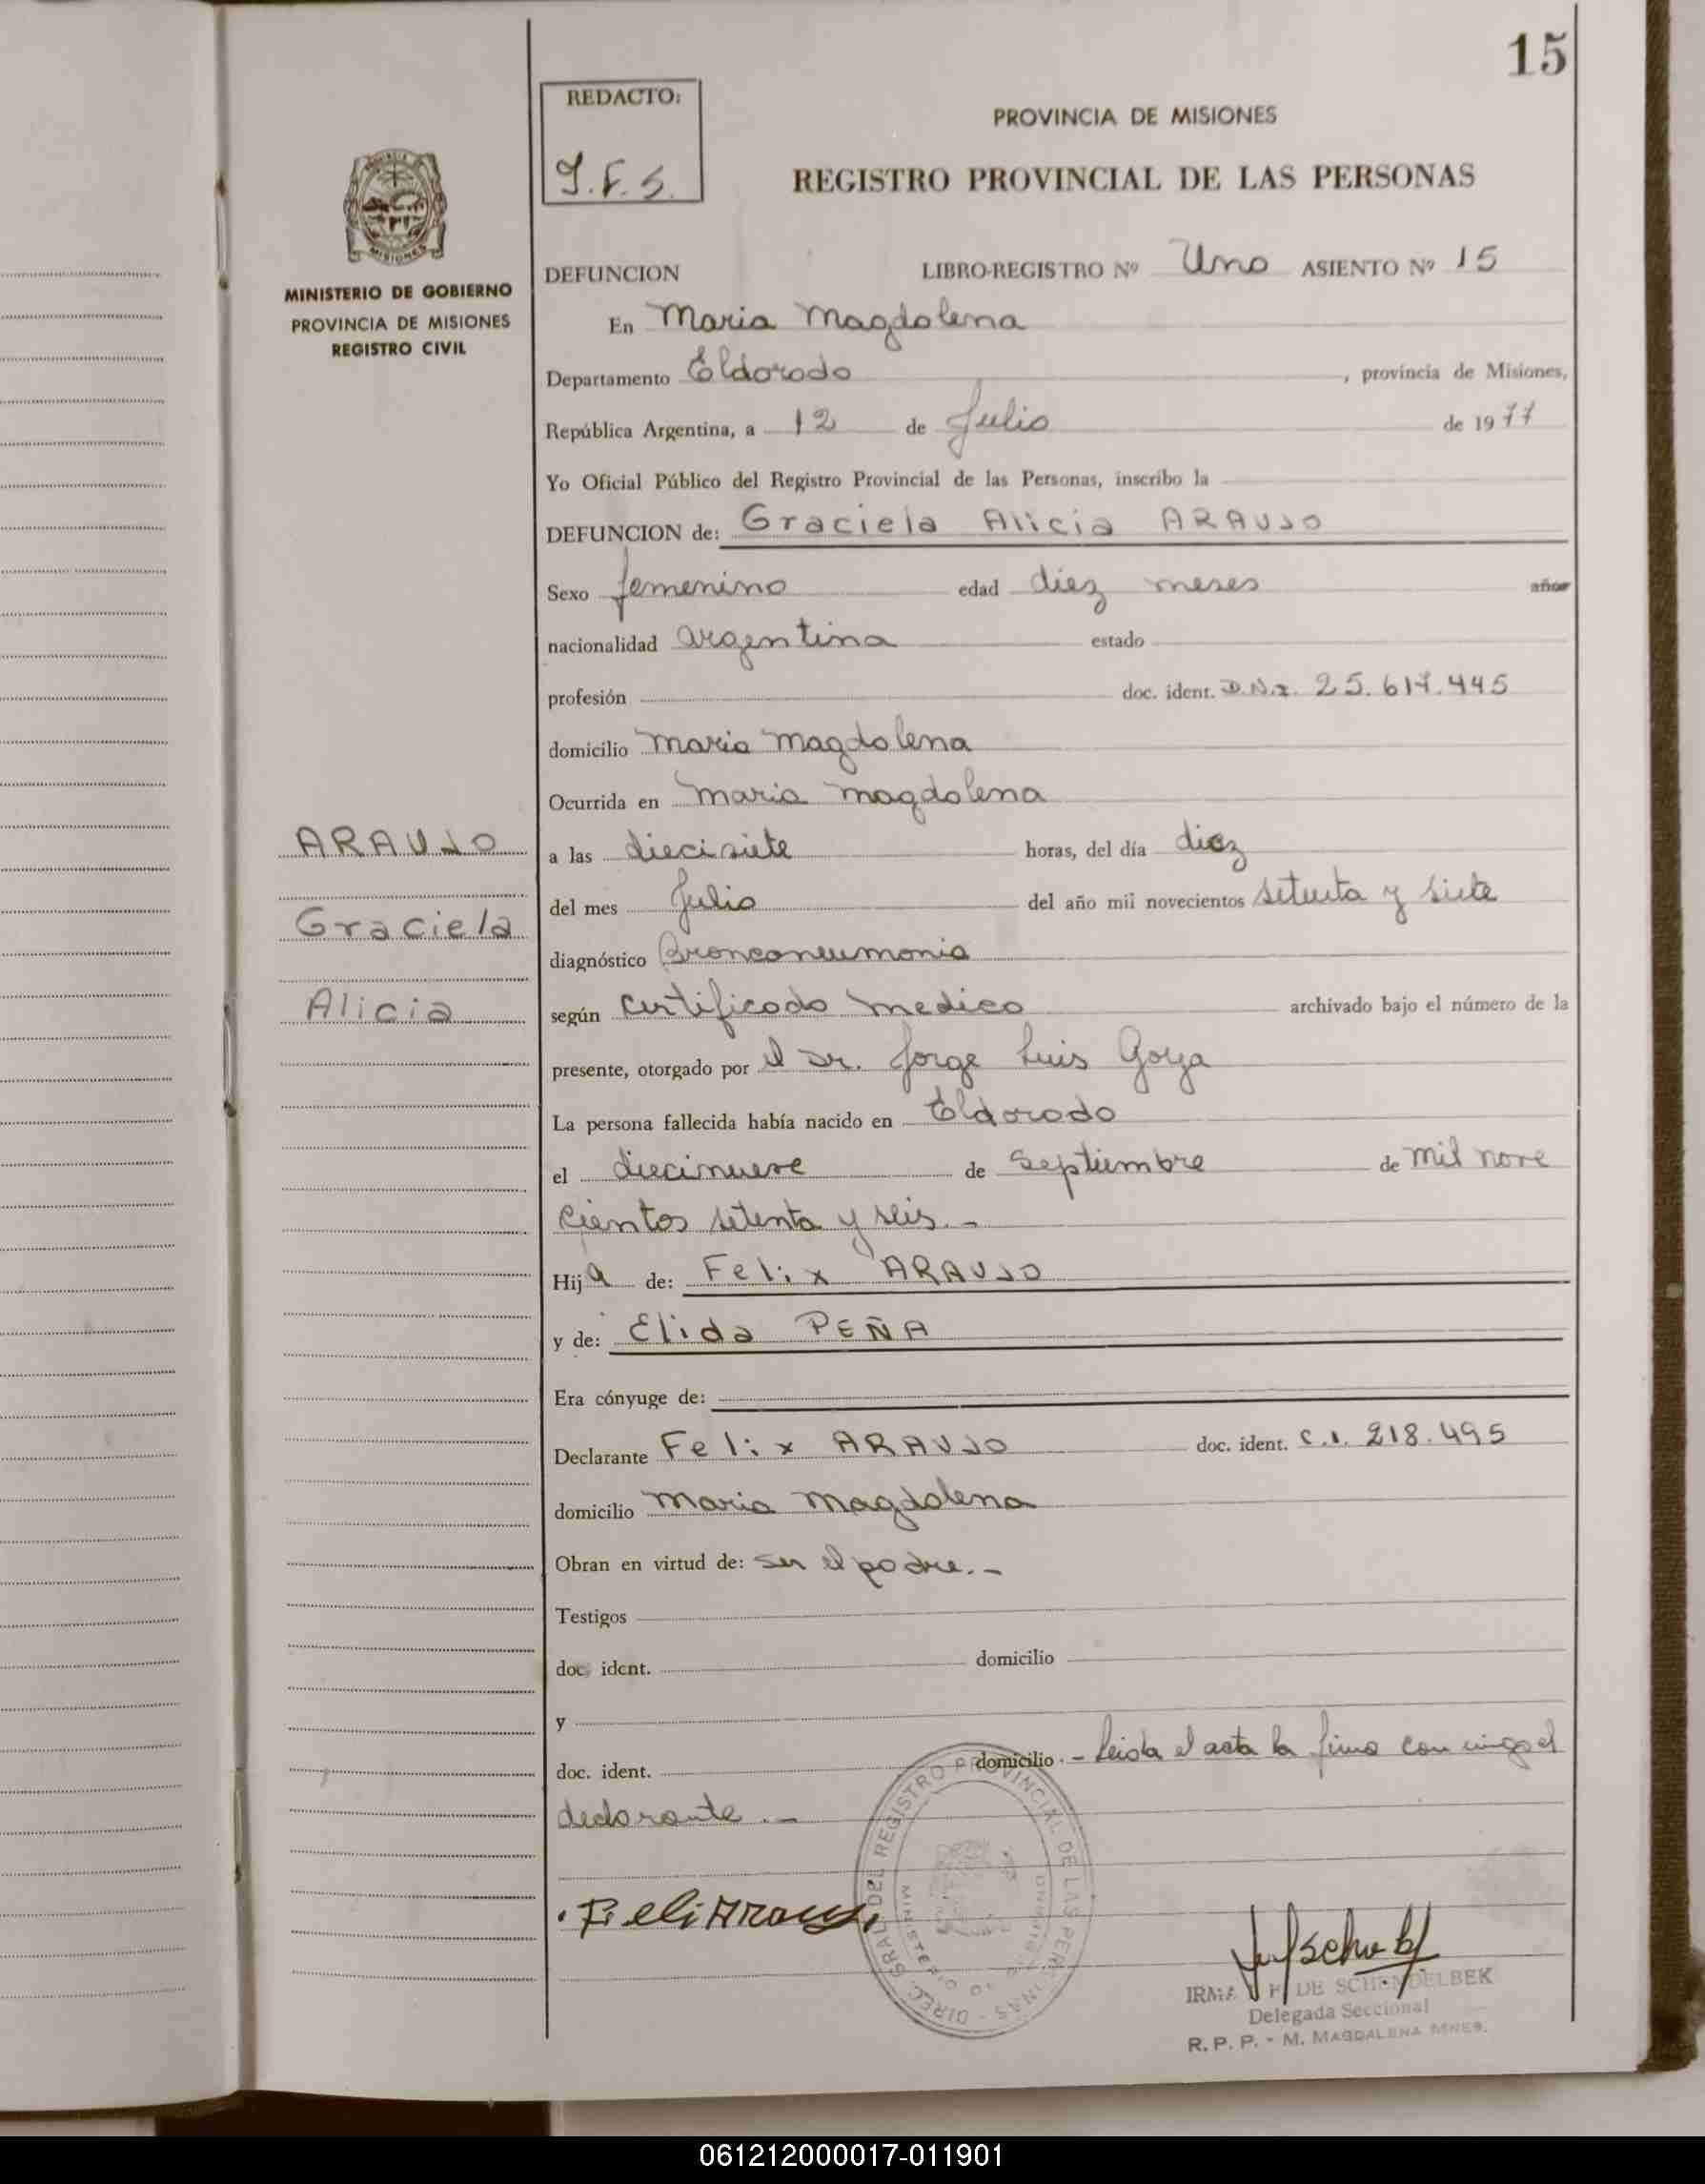 15
REDACTO:
J.F.S.
PROVINCIA DE MISIONES
REGISTRO PROVINCIAL DE LAS PERSONAS
MISIONES
MINISTERIO DE GOBIERNO
PROVINCIA DE MISIONES
REGISTRO CIVIL
DEFUNCION LIBRO-REGISTRO Nº Uno ASIENTO Nº 15
En Maria Magdalena
Departamento Eldorado, provincia de Misiones,
República Argentina, a 12 de Julio de 1977
Yo Oficial Público del Registro Provincial de las Personas, inscribo la
DEFUNCION de: Graciela Alicia ARAUJO
Sexo femenino edad diez meses años
nacionalidad argentina estado
profesión doc. ident. D.N.I. 25.617.445
domicilio Maria Magdalena
Ocurrida en Maria Magdalena
a las diecisiete horas, del día diez
del mes Julio del año mil novecientos setenta y siete
diagnóstico Bronconeumonia
según certificado medico archivado bajo el número de la
presente, otorgado por el Dr. Jorge Luis Goya
La persona fallecida había nacido en Eldorado
el diecinueve de Septiembre de mil nove
cientos setenta y seis.-
Hija de: Felix ARAUJO
y de: Elida PEÑA
Era cónyuge de:
Declarante Felix ARAUJO doc. ident. C.I. 218.495
domicilio Maria Magdalena
Obran en virtud de: ser el padre.-
Testigos
doc. ident. domicilio
y
doc. ident. domicilio.- Leida el acta la firma con migo el
declarante.-
ARAUJO
Graciela
Alicia
DIREC. GRAL DEL REGISTRO PROVINCIAL DE LAS PERSONAS
MINISTERIO DE
IRMA F. DE SCHENDELBEK
Delegada Seccional
R. P. P. - M. MAGDALENA MNES.
061212000017-011901